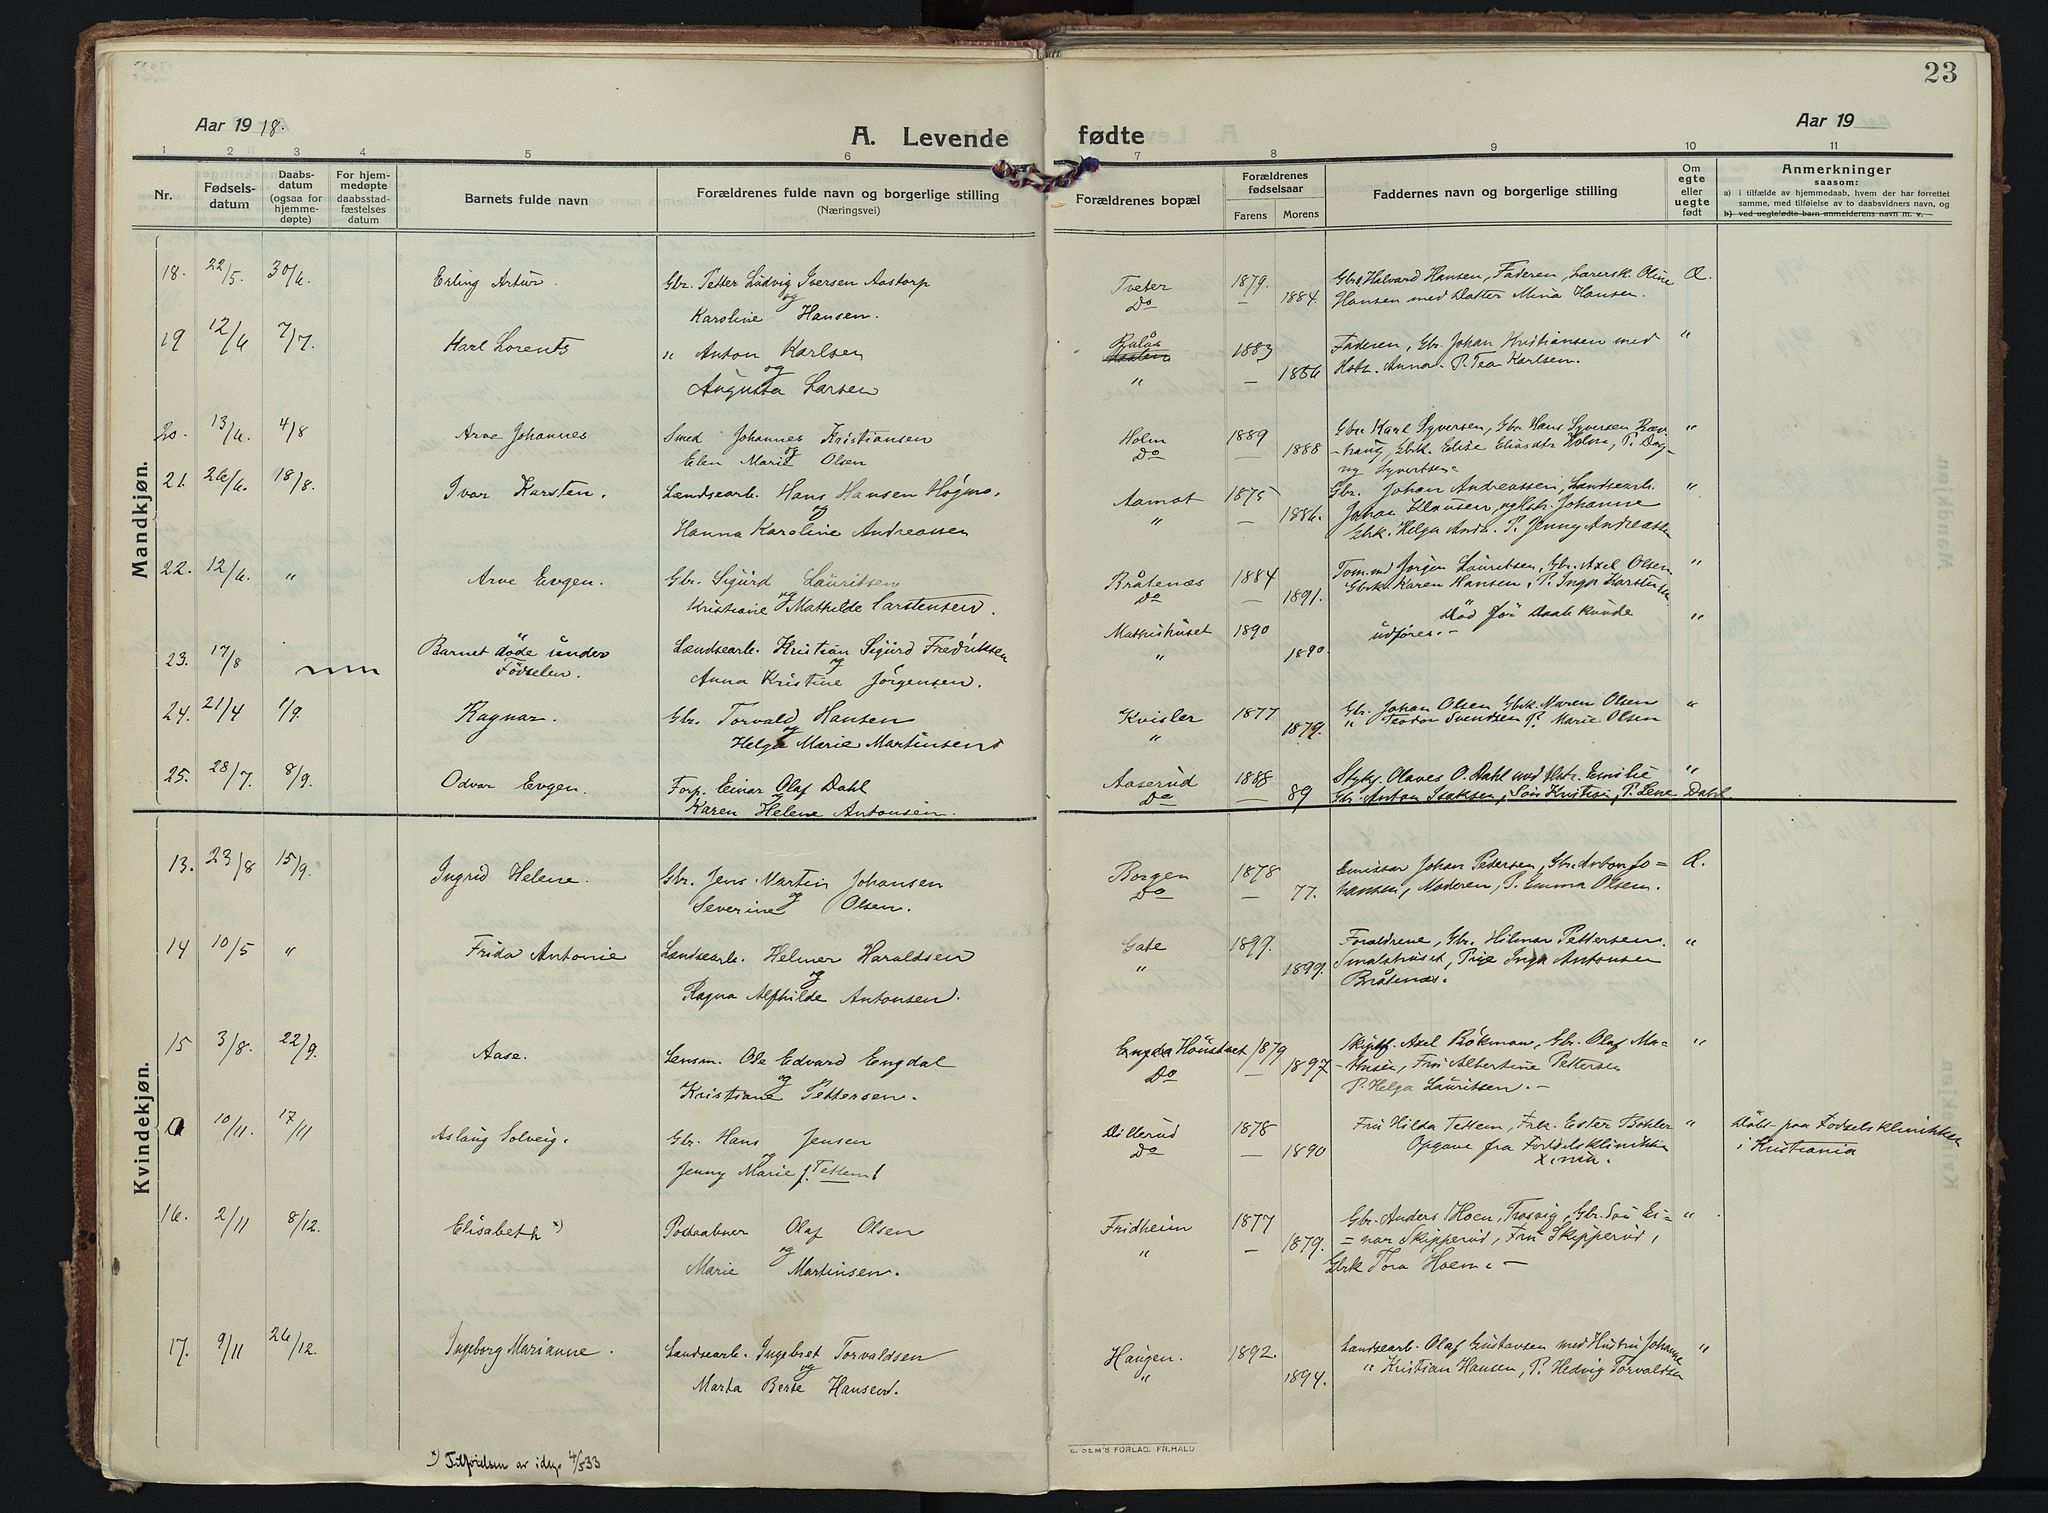 23
Aar 1918.
A. Levende fødte
Aar 19
1 2 3 4 5 6 7 8 9 10 11
Nr.
Fødsels-
datum
Daabs-
datum
(ogsaa for
hjemme-
døpte)
For hjem-
medøpte
daabsstad-
fæstelses
datum
Barnets fulde navn
Forældrenes fulde navn og borgerlige stilling
(Næringsvei)
Forældrenes bopæl
Forældrenes
fødselsaar
Farens Morens
Faddernes navn og borgerlige stilling
Om
egte
eller
uegte
født
Anmerkninger
saasom:
a) i tilfælde av hjemmedaab, hvem der har forrettet
samme, med tilføielse av to daabsvidners navn, og
b) ved uegtefødte barn anmelderens navn m. v.
Mandkjøn.
18. 22/5. 30/6. Erling Artur. Gbr. Petter Ludvig Iversen Aastorp Tveter 1879. Gbr. Halvard Hansen, Faderen, Lærersk. Oline
og
Karoline Hansen. Do — 1884. Hansen med Datter Mina Hansen.
19 12/6 7/7. Karl Lorents " Anton Karlsen 1883 Faderen, Gbr. Johan Kristiansen med "
og
Augusta Larsen " — Hstr. Anna. P. Tea Karlsen.
20. 13/6. 4/8 Arve Johannes Smed Johannes Kristiansen Holm 1889 Gbr. Karl Syversen, Gbr. Hans Syversen "
og
Elen Marie Olsen Do — 1888 Gbrk. Elise Eliasdtr Holm, P. Dag-
ny Syvertsen
21. 26/6. 18/8. Ivar Karsten. Landsearb. Hans Hansen Høgmo. Aamot 1875 Gbr. Johan Andreassen, Landsearb. "
og
Hanna Karoline Andreassen " — 1886. Johan Klausen, og Hstr. Johanne
Gbrk. Helga Andr. P. Jenny Andreassen
22. 12/6. " Arve Evgen. Gbr. Sigurd Lauritsen Bråtenæs 1884 Tømm.md Jørgen Lauritsen, Gbr. Axel Olsen "
og
Kristiane Mathilde Carstensen. Do — 1891. Gbrk. Karen Hansen, P. Inga Karstensen
23. 17/8 Barnet døde under Landsearb. Kristian Sigurd Fredriksen Mathishuset 1890 Død før Daab kunde "
og
Fødselen. Anna Kristine Jørgensen. " 1890. udføres. —
24. 21/4 1/9. Ragnar. Gbr. Torvald Hansen Kvisler 1877 Gbr. Johan Olsen Gbrk. Maren Olsen "
og
Helga Marie Martinsen " 1879. " Teodor Svendsen P. Marie Olsen
25. 28/7. 8/9. Odvar Evgen. Forp. Einar Olaf Dahl Aaserud 1888 Stykg. Olaves O. Dahl med Hstr. Emilie "
Karen Helene Antonsen. Do — 89 Gbr. Anton Isaksen, Søn Kristian, P. Lene Dahl
Kvindekjøn.
13. 23/8 15/9. Ingrid Helene. Gbr. Jens Martin Johansen Borgen 1878 Emissær Johan Pedersen, Gbr. Anton Jo-
og
Severine Olsen. Do — 77. hansen, Moderen, P. Emma Olsen.
14 10/5 " Frida Antonie Landsearb. Helmer Haraldsen Gate 1899. Forældrene, Gbr. Hilmar Pettersen "
og
Ragna Alfhilde Antonsen. " 1899. Smalshuset, Pige Inga Antonsen
Bråtenæs.
15 3/8. 22/9. Aase. Lensm. Ole Edvard Engdal 1879 Skiptf. Axel Bökman, Gbr. Olaf Ma- "
og
Kristiane Pettersen. Do — 1897 -thisen, Frøi Albertine Pettersen
P. Helga Lauritsen. —
10/11. 17/11 Aslaug Solveig. Gbr. Hans Jensen Dillerud 1878 Fru Hilda Tettem, Frk. Ester Bøhler " Døbt paa Fødselsklinikken
og
Jenny Marie f. Tettem Do — 1890 Opgave fra Fødselsklinikken i Kristiania
16. 2/11 8/12. Elisabeth x) Postaabner Olaf Olsen Fridheim 1877 Gbr. Anders Hoen, Trosvig, Gbr. Søn Ei- "
og
Marie Martinsen. " — 1879. =nar Skipperud, Fru Skipperud,
Gbrk Tora Hoen. —
17. 9/11 26/12. Ingeborg Marianne. Landsearb. Ingebret Torvaldsen Haugen. 1892. Landsearb. Olaf Gustavsen med Hustru Johanne "
og
Marta Berte Hansen. " 1894. " Kristian Hansen, P. Hedvig Torvaldsen
x) Tilføielsen av 4/5 33
E. SEM'S FORLAG, FR.HALD